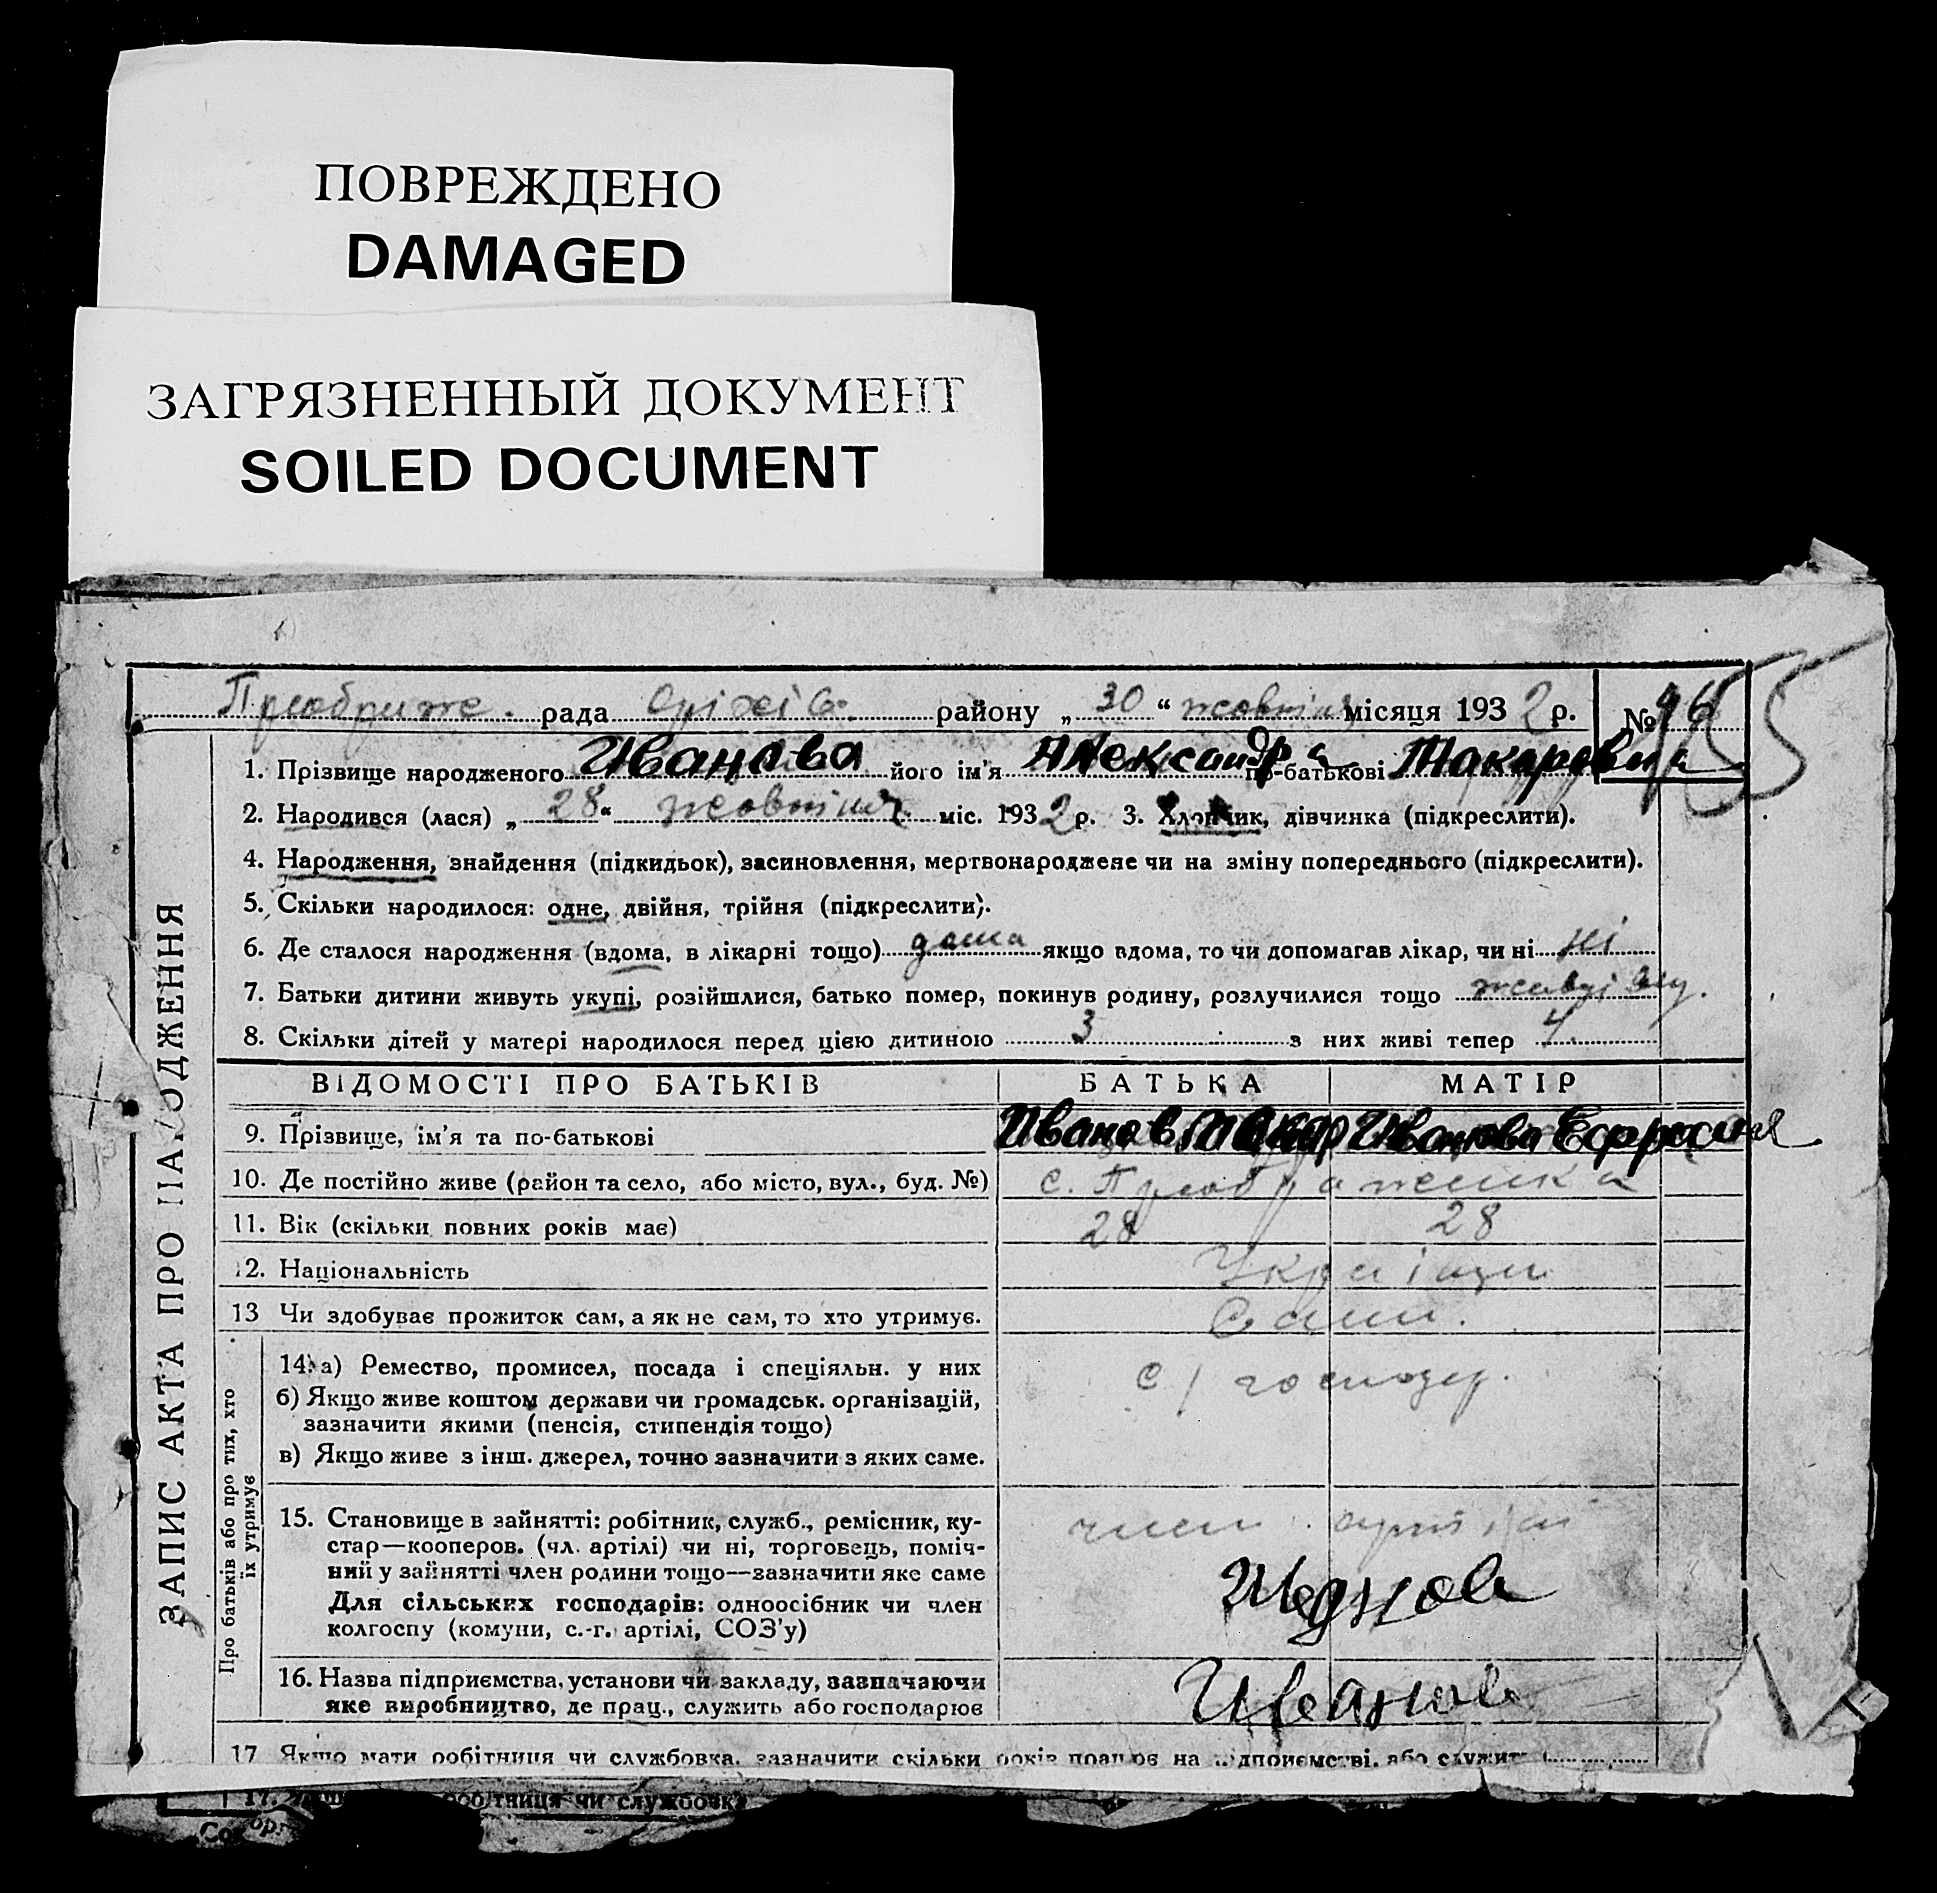 ПОВРЕЖДЕНО
DAMAGED
ЗАГРЯЗНЕННЫЙ ДОКУМЕНТ
SOILED DOCUMENT
Преображ. рада Оріхів. району „30“ жовтня місяця 1932 р. № 96
55
1. Прізвище народженого Иванова його ім'я Александра по-батькові Макаровна
2. Народився (лася) „28“ жовтня міс. 1932 р. 3. Хлопчик, дівчинка (підкреслити).
4. Народження, знайдення (підкидьок), засиновлення, мертвонароджене чи на зміну попереднього (підкреслити).
5. Скільки народилося: одне, двійня, трійня (підкреслити).
6. Де сталося народження (вдома, в лікарні тощо) дома якщо вдома, то чи допомагав лікар, чи ні ні
7. Батьки дитини живуть укупі, розійшлися, батько помер, покинув родину, розлучилися тощо живуть
8. Скільки дітей у матері народилося перед цією дитиною 3 з них живі тепер 4
ЗАПИС АКТА ПРО НАРОДЖЕННЯ
ВІДОМОСТІ ПРО БАТЬКІВ БАТЬКА МАТІР
9. Прізвище, ім'я та по-батькові Иванов Макар Иванова Ефросиния
10. Де постійно живе (район та село, або місто, вул., буд. №) с. Преображенка
11. Вік (скільки повних років має) 28 28
12. Національність Українці
13 Чи здобуває прожиток сам, а як не сам, то хто утримує. Сами.
Про батьків або про тих, хто
їх утримує
14. а) Ремество, промисел, посада і спеціяльн. у них с/господар.
б) Якщо живе коштом держави чи громадськ. організацій,
зазначити якими (пенсія, стипендія тощо)
в) Якщо живе з інш. джерел, точно зазначити з яких саме.
15. Становище в зайнятті: робітник, служб., ремісник, ку-
стар—кооперов. (чл. артілі) чи ні, торговець, поміч-
ний у зайнятті член родини тощо—зазначити яке саме
Для сільських господарів: одноосібник чи член
колгоспу (комуни, с.-г. артілі, СОЗ'у)
член артілі
16. Назва підприємства, установи чи закладу, зазначаючи
яке виробництво, де прац., служить або господарює
Иванов
17 Якщо мати робітниця чи службовка, зазначити скільки років працює на підприємстві, або служить
17. робітниця чи службовка